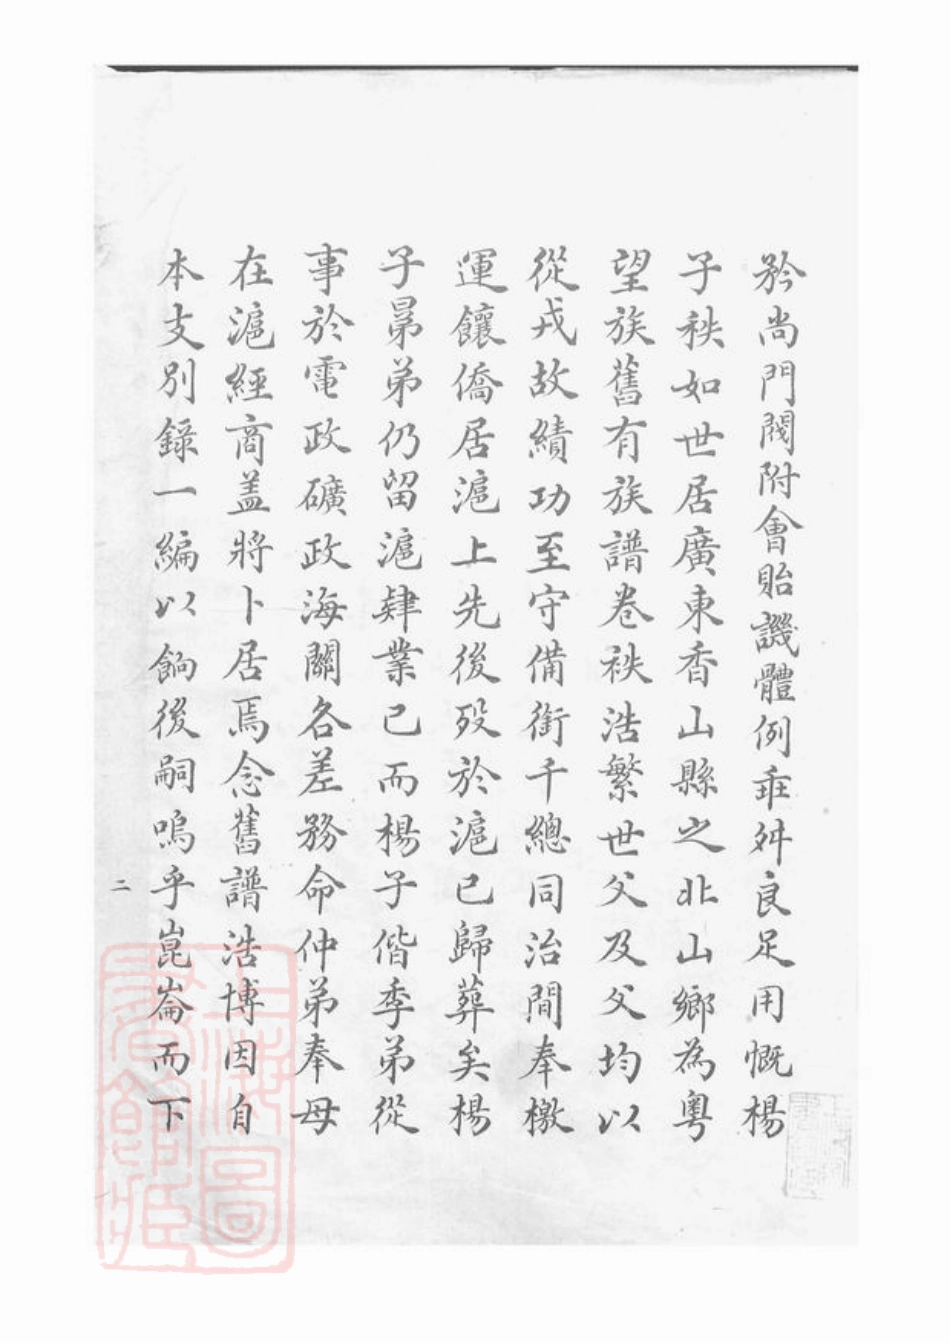 矜尚門閥附會貽譏體例乖舛良足用慨楊
子秩如世居廣東香山縣之北山鄉為粵
望族舊有族譜卷袟浩繁世父及父均以
從戎故績功至守備銜千總同治間奉檄
運饟僑居滬上先後歿於滬已歸葬矣楊
子㫷弟仍留滬肄業已而楊子偕季弟從
事於電政礦政海關各差務命仲弟奉母
在滬經商盖將卜居焉念舊譜浩博因自
本支別錄一編以餉後嗣嗚乎崑崙而下
二
上海圖書館藏